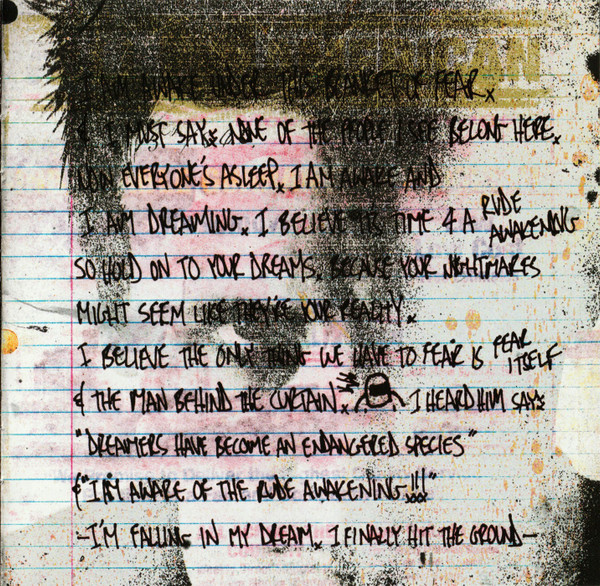 ICAN
I AM AWAKE UNDER THIS BLANKET OF FEAR.
& I MUST SAY: NONE OF THE PEOPLE I SEE BELONG HERE.
NOW EVERYONE'S ASLEEP. I AM AWARE AND
I AM DREAMING. I BELIEVE ITS TIME 4 A RUDE AWAKENING
SO HOLD ON TO YOUR DREAMS. BECAUSE YOUR NIGHTMARES
MIGHT SEEM LIKE THEY'RE YOUR REALITY.
I BELIEVE THE ONLY THING WE HAVE TO FEAR IS FEAR ITSELF
& THE MAN BEHIND THE CURTAIN. I HEARD HIM SAY:
"DREAMERS HAVE BECOME AN ENDANGERED SPECIES"
&"I AM AWARE OF THE RUDE AWAKENING!!!"
-I'M FALLING IN MY DREAM. I FINALLY HIT THE GROUND-